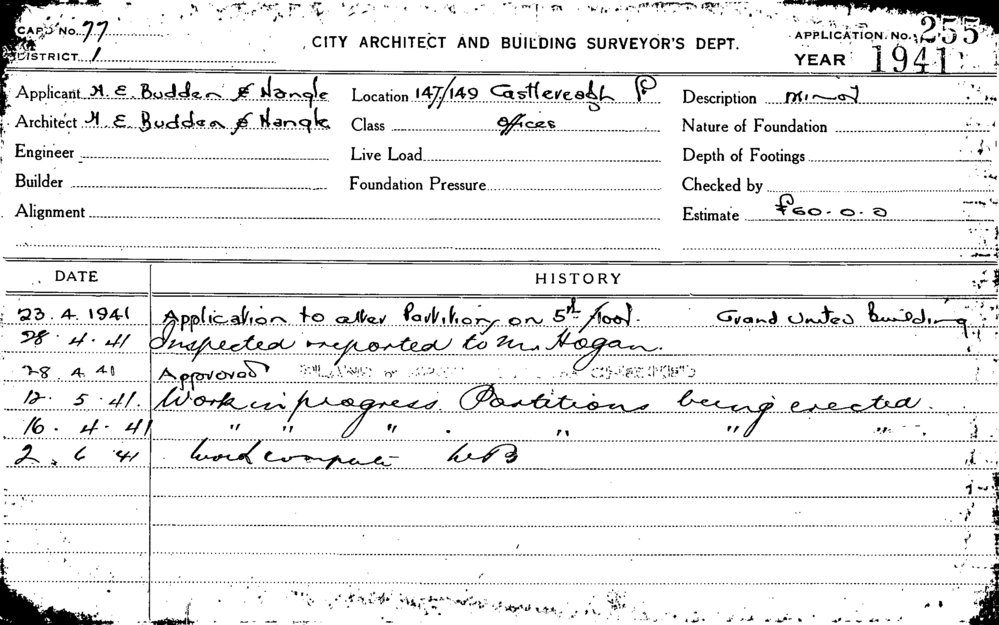 CARD No. 77
DISTRICT 1
CITY ARCHITECT AND BUILDING SURVEYOR'S DEPT.
APPLICATION. No. 255
YEAR 1941
Applicant H. E. Budden & Nangle
Location 147/149 Castlereagh
Description Minor
Architect H. E. Budden & Nangle
Class Offices
Nature of Foundation
Engineer
Live Load
Depth of Footings
Builder
Foundation Pressure
Checked by
Alignment
Estimate £60.0.0
DATE HISTORY
23.4.1941 Application to alter Partitions on 5th floor. Grand United Building
28.4.41 Inspected & reported to Mr. Hogan.
28.4.41 Approved
12.5.41. Work in progress. Partitions being erected.
16.4.41 " " " . " " "
2.6.41 Work complete WB